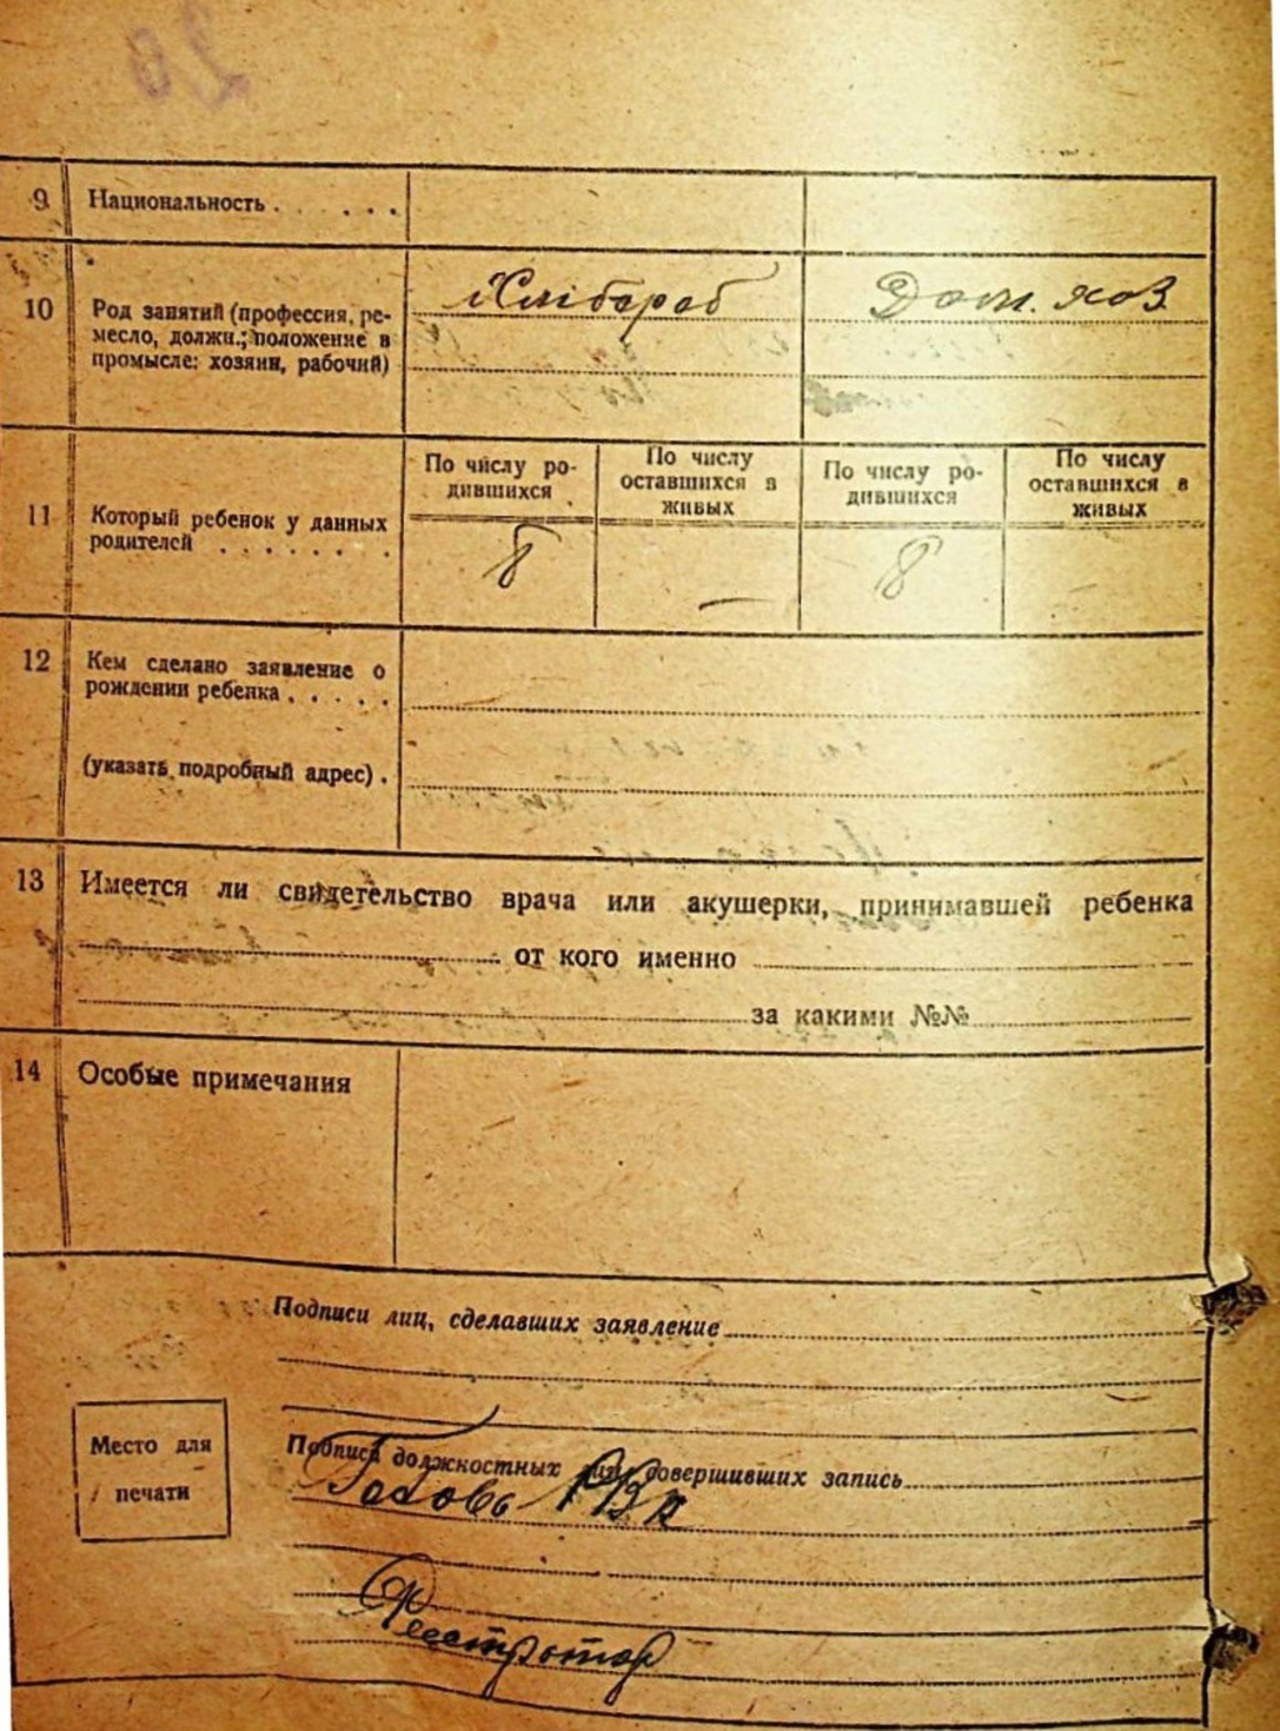 20
9 Национальность . . . . . .
10 Род занятий (профессия, ре-
месло, должн.; положение в
промысле: хозяин, рабочий)
Хлібороб Дом. хоз
11 Который ребенок у данных
родителей . . . . . . . .
По числу ро-
дившихся
По числу
оставшихся в
живых
По числу ро-
дившихся
По числу
оставшихся в
живых
8 — 8 —
12 Кем сделано заявление о
рождении ребенка . . . . .
(указать подробный адрес) .
13 Имеется ли свидетельство врача или акушерки, принимавшей ребенка
от кого именно
за какими №№
14 Особые примечания
Подписи лиц, сделавших заявление
Место для
печати
Подписи должностных лиц, совершивших запись
Голова
Реєстратор